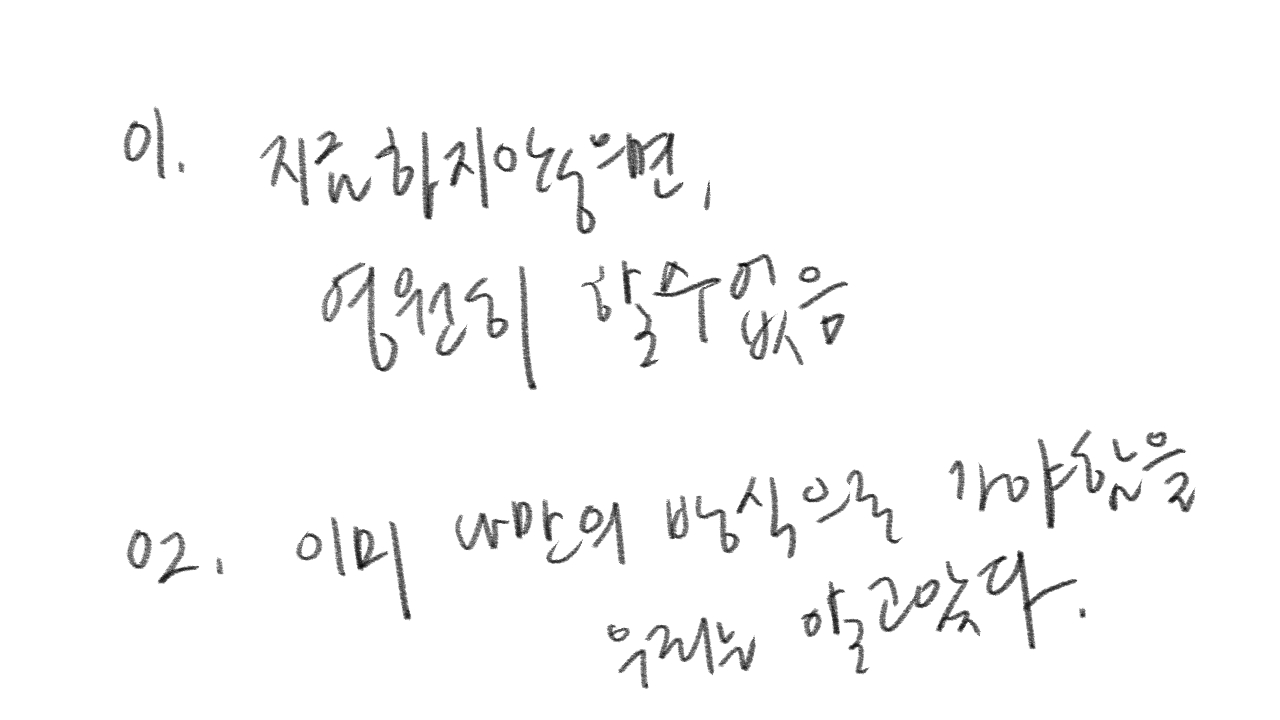 01. 지금하지않으면,
영원히 할수없음
02. 이미 나만의 방식으로 가야함을
우리는 알고있다.